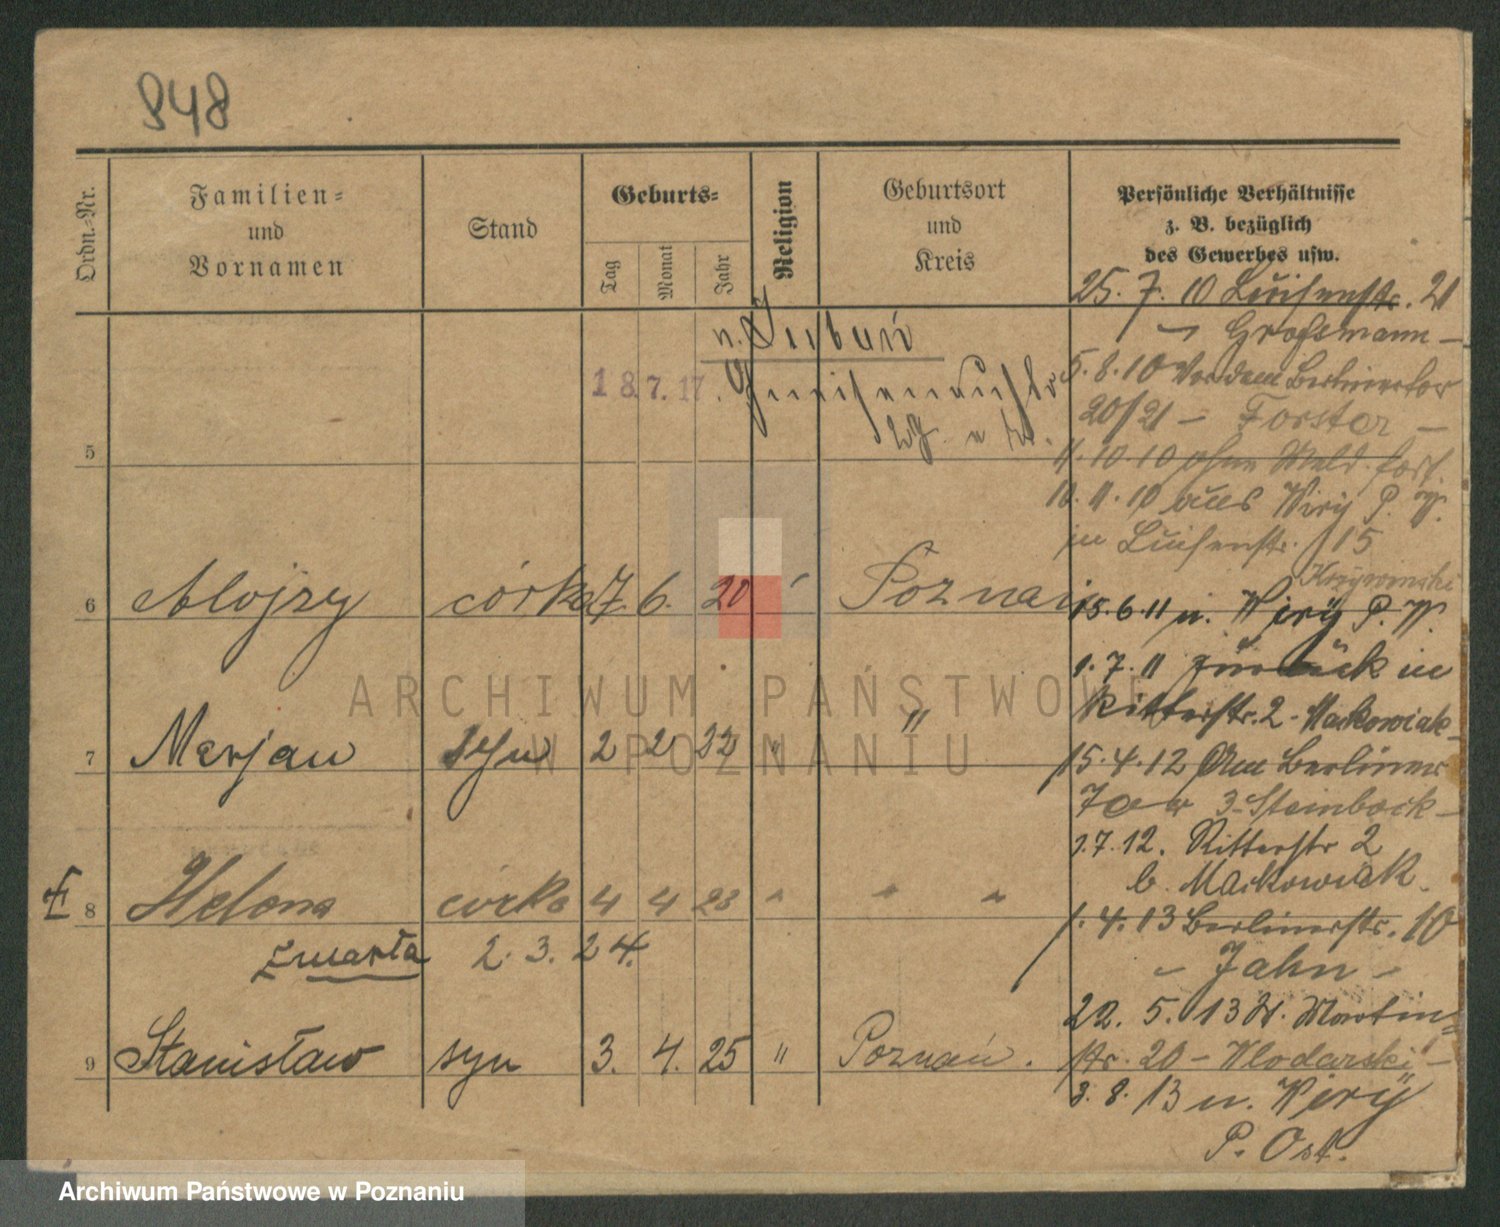 948
Ordn.-Nr.
Familien-
und
Vornamen
Stand
Geburts-
Tag
Monat
Jahr
Religion
Geburtsort
und
Kreis
Persönliche Verhältnisse
z. B. bezüglich
des Gewerbes usw.
25. 7. 10 Luisenstr. 21
- Grossmann -
5. 8. 10 Vor dem Berlinertor
20/21 - Forster -
11. 10. 10 ohne Meld. fort.
10. 11. 10 aus Wiry P. W.
in Luisenstr. 15
Krzywinski
15. 6. 11 n. Wiry P. W.
1. 7. 11 zurück in
Ritterstr. 2 - Markowiak -
15. 4. 12 Am Berliner
Tor 3 - Steinbock -
1. 7. 12. Ritterstr 2
b. Markowiak.
1. 4. 13 Berlinerstr. 10
- Jahn -
22. 5. 13 St. Martin
str. 20 - Wlodarski -
3. 8. 13 n. Wiry
P. Ost.
n.
18 7. 17.
5
6 Alojzy córka 27. 6. 20 Poznań
7 Merjan syn 2 2 22 " "
8 Helena córka 4 4 23 " " "
zmarła 2. 3. 24.
9 Stanisław syn 3. 4. 25 " Poznań.
ARCHIWUM PAŃSTWOWE
W POZNANIU
Archiwum Państwowe w Poznaniu